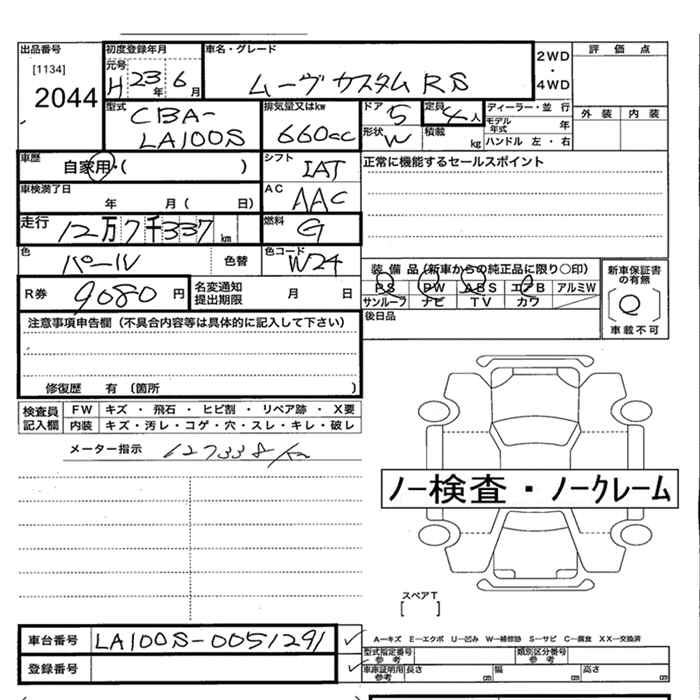 出品番号 [1134] 2044
初度登録年月 元号 H 23 年 6 月
車名・グレード ムーヴ カスタム RS
2WD・4WD
評価点
外装 内装
型式 CBA-LA100S
排気量又はkw 660cc
ドア 5 形状 W
定員 4人 積載 kg
ディーラー・並行
モデル年式 年
ハンドル 左・右
車歴 自家用・( )
シフト IAT
正常に機能するセールスポイント
車検満了日 年 月( 日)
AC AAC
走行 12万7千337 km
燃料 G
色 パール 色替
色コード W24
装備品(新車からの純正品に限り○印)
PS PW ABS エアB アルミW
サンルーフ ナビ TV カワ
新車保証書の有無 [○] 車載不可
R券 9080円
名変通知提出期限 月 日
後日品
注意事項申告欄(不具合内容等は具体的に記入して下さい)
修復歴 有(箇所 )
検査員記入欄
FW キズ・飛石・ヒビ割・リペア跡・X要
内装 キズ・汚レ・コゲ・穴・スレ・キレ・破レ
メーター指示 127338km
ノー検査・ノークレーム
スペアT [ ]
車台番号 LA100S-0051291
A-キズ E-エクボ U-凹み W-補修跡 S-サビ C-腐食 XX-交換済
型式指定番号 参考 類別区分番号 参考
登録番号
車庫証明用参考 長さ cm 幅 cm 高さ cm